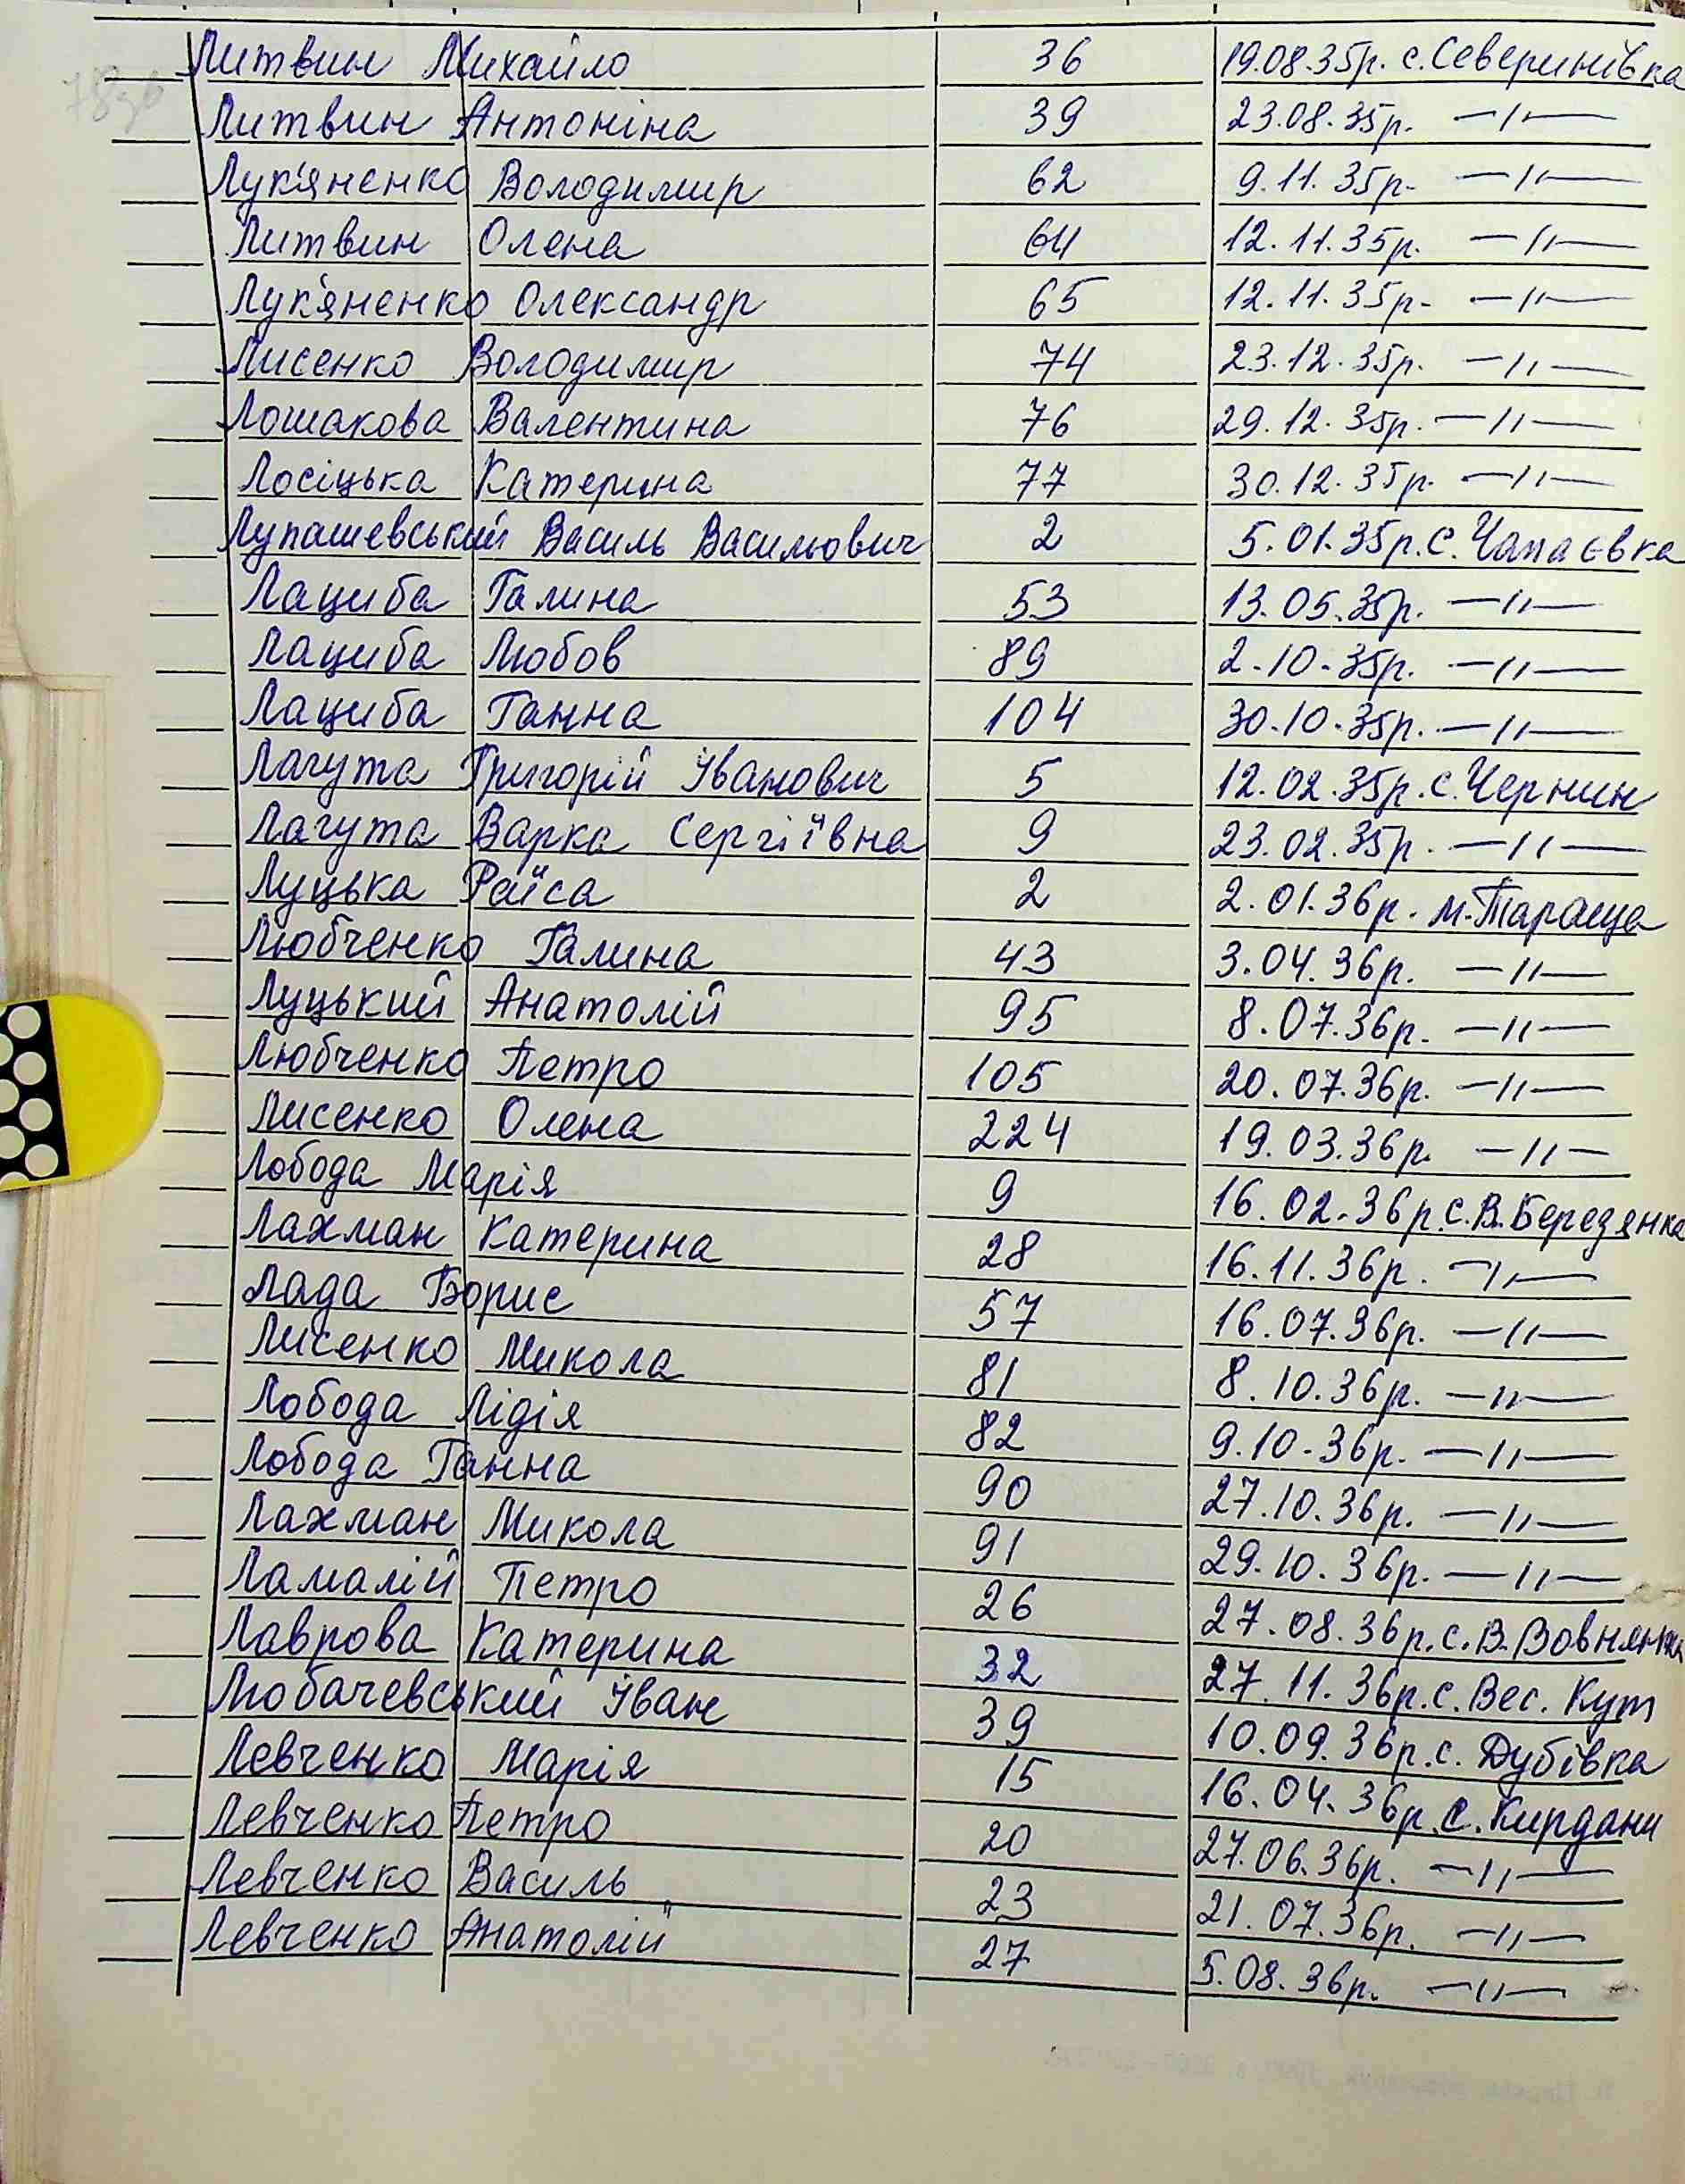 Литвин Михайло 36 19.08.35р. с. Северинівка
Литвин Антоніна 39 23.08.35р. —〃—
Лук'яненко Володимир 62 9.11.35р. —〃—
Литвин Олена 64 12.11.35р. —〃—
Лук'яненко Олександр 65 12.11.35р. —〃—
Лисенко Володимир 74 23.12.35р. —〃—
Лошакова Валентина 76 29.12.35р. —〃—
Лосіцька Катерина 77 30.12.35р. —〃—
Лупашевський Василь Васильович 2 5.01.35р. с. Чапаєвка
Лациба Галина 53 13.05.35р. —〃—
Лациба Любов 89 2.10.35р. —〃—
Лациба Ганна 104 30.10.35р. —〃—
Лагута Григорій Іванович 5 12.02.35р. с. Чернин
Лагута Варка Сергіївна 9 23.02.35р. —〃—
Луцька Раїса 2 2.01.36р. м. Тараща
Любченко Галина 43 3.04.36р. —〃—
Луцький Анатолій 95 8.07.36р. —〃—
Любченко Петро 105 20.07.36р. —〃—
Лисенко Олена 224 19.03.36р. —〃—
Лобода Марія 9 16.02.36р. с. В. Березянка
Лахман Катерина 28 16.11.36р. —〃—
Лада Борис 57 16.07.36р. —〃—
Лисенко Микола 81 8.10.36р. —〃—
Лобода Лідія 82 9.10.36р. —〃—
Лобода Ганна 90 27.10.36р. —〃—
Лахман Микола 91 29.10.36р. —〃—
Ламалій Петро 26 27.08.36р. с. В. Вовнянка
Лаврова Катерина 32 27.11.36р. с. Вес. Кут
Любачевський Іван 39 10.09.36р. с. Дубівка
Левченко Марія 15 16.04.36р. с. Кирдани
Левченко Петро 20 27.06.36р. —〃—
Левченко Василь 23 21.07.36р. —〃—
Левченко Анатолій 27 5.08.36р. —〃—